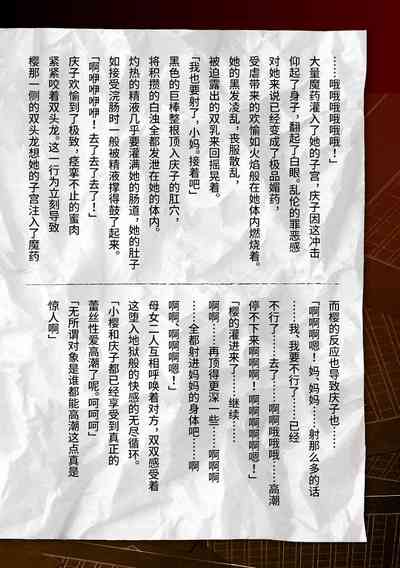 ……哦哦哦哦哦哦！」
大量魔药灌入了她的子宫，庆子因这冲击
仰起了身子，翻起了白眼。乱伦的罪恶感
对她来说已经变成了极品媚药，
受虐带来的欢愉如火焰般在她体内燃烧着。
她的黑发凌乱，丧服散乱，
被迫露出的双乳来回摇晃着。
「我也要射了，小妈。接着吧」
黑色的巨棒整根顶入庆子的肛穴，
将积攒的白浊全都发泄在她的体内。
灼热的精液几乎要灌满她的肠道，她的肚子
如接受浣肠时一般被精液撑得鼓了起来。
「啊咿咿咿咿！去了去了去了！」
庆子欢愉到了极致，痉挛不止的蜜肉
紧紧咬着双头龙。这一行为立刻导致
樱那一侧的双头龙想她的子宫注入了魔药
而樱的反应也导致庆子也……
「啊啊啊嗯！妈，妈妈……射那么多的话
……我、我要不行了……已经
不行了……去了……啊啊哦哦哦……高潮
停不下来啊啊啊！啊啊啊啊啊嗯！」
「樱的灌进来了……继续……
啊啊……再顶得更深一些……啊啊啊
……全都射进妈妈的身体吧……啊
啊啊、啊啊啊嗯！」
母女二人互相呼唤着对方，双双感受着
这堕入地狱般的快感的无尽循环。
「小樱和庆子都已经享受到真正的
蕾丝性爱高潮了呢。呵呵呵」
「无所谓对象是谁都能高潮这点真是
惊人啊」